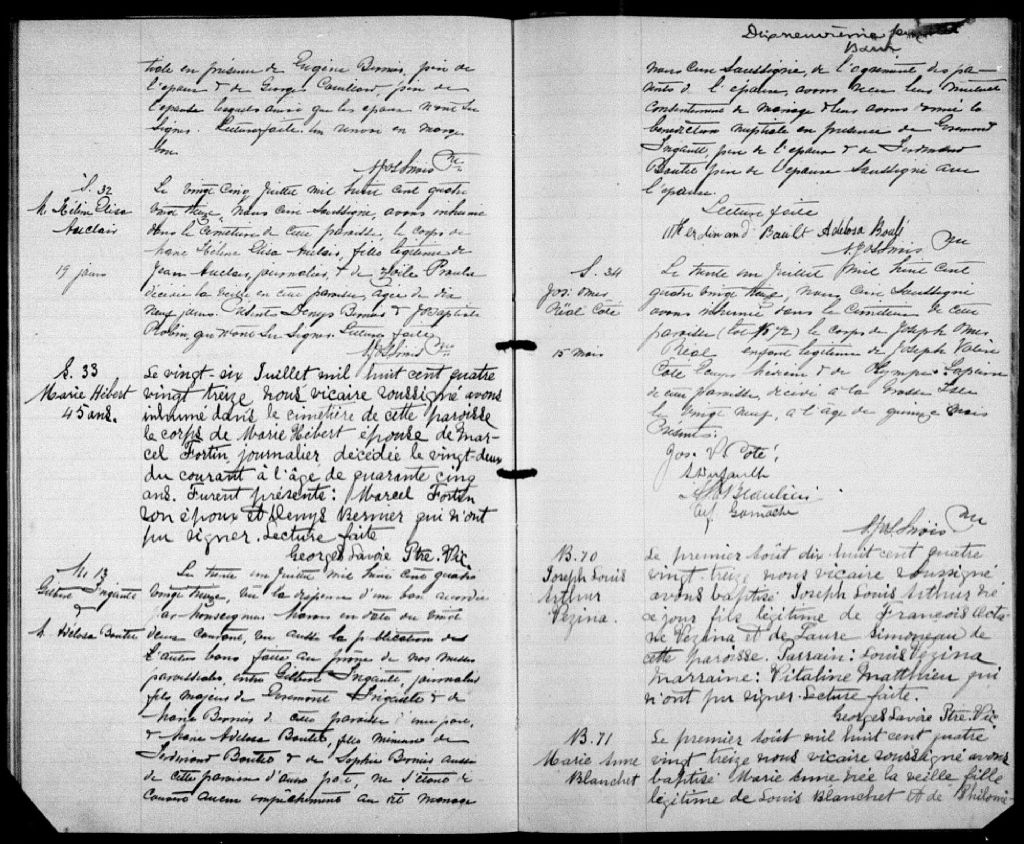 tiale en présence de Eugène Bernier, père de
l'époux & de Georges père de
l'épouse lesquels ainsi que les époux n'ont su
signer. Lecture faite. Un renvoi en marge
bon
Ptre
S. 32
M. Hélène Elisa
Auclair
19 jours
Le vingt cinq Juillet mil huit cent quatre
vingt treize, Nous Curé soussigné, avons inhumé
dans le Cimetière de cette paroisse, le corps de
Marie Hélène Elisa Auclair, fille légitime de
Jean Auclair, journalier, & de Zoïla Proulx
décédée la veille en cette paroisse, âgée de dix
neuf jours. Présents Denys Bernier & J. Baptiste
Robin, qui n'ont su signer. Lecture faite
Ptre
S. 33
Marie Hébert
45 ans.
Le vingt-six Juillet mil huit cent quatre
vingt treize nous vicaire soussigné avons
inhumé dans le cimetière de cette paroisse
le corps de Marie Hébert épouse de Mar-
cel Fortin journalier décédée le vingt-deux
du courant à l'âge de quarante cinq
ans. Furent présents: Marcel Fortin
son époux et Denys Bernier qui n'ont
pu signer. Lecture faite
Georges Savoie Ptre. Vic.
M. 13
& M. Adélosa
Le trente un Juillet mil huit cent quatre
vingt treize, vu la dispense d'un ban accordée
par Monseigneur en date du vingt
deux courant, vu aussi la publication des
deux autres bans faite au prône de nos messes
paroissiales, entre journalier
fils majeur de & de
Marie Bernier de cette paroisse d'une part,
& Marie Adélosa fille mineure de
Ferdinand & de Sophie Bernier aussi
de cette paroisse d'autre part, ne s'étant dé-
couvert aucun empêchement au dit mariage
Dix neuvième feuillet
nous Curé soussigné, de l'agrément des pa-
rents de l'épouse, avons reçu leur mutuel
consentement de mariage & leur avons donné la
bénédiction nuptiale en présence de
père de l'époux & de Ferdinand
père de l'épouse soussigné avec
l'épouse.
Lecture faite
Ferdinand Bault Adélosa
Ptre
S. 34
Jos: Omer
Réal Coté
15 mois
Le trente un Juillet mil huit cent
quatre vingt treize, nous Curé soussigné
avons inhumé dans le Cimetière de cette
paroisse le corps de Joseph Omer
Réal enfant légitime de Joseph Valère
Coté & de Olympe
de cette paroisse, décédé à la Grosse Isle
le vingt neuf, à l'âge de quinze mois
Présents:
Jos. V. Coté,
Beaulieu
Gamache
Ptre
B. 70
Joseph Louis
Arthur
Vézina.
Le premier Août dix huit cent quatre
vingt-treize nous vicaire soussigné
avons baptisé Joseph Louis Arthur né
ce jour fils légitime de François
Vézina et de Laure Simoneau de
cette paroisse. Parrain: Louis Vézina
marraine: Vitaline Matthieu qui
n'ont pu signer. Lecture faite.
Georges Savoie Ptre. Vic
B. 71
Marie Anne
Blanchet
Le premier Août mil huit cent quatre
vingt treize nous vicaire soussigné avons
baptisé Marie Anne née la veille fille
légitime de Louis Blanchet et de Philomè-